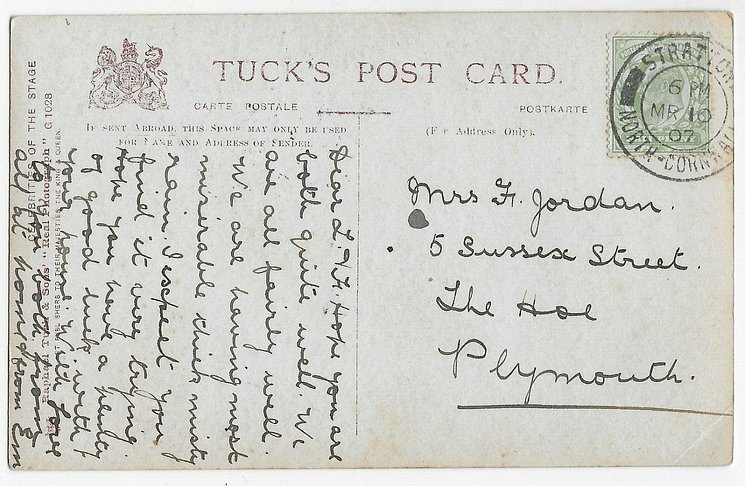 TUCK'S POST CARD.
CARTE POSTALE
POSTKARTE
IF SENT ABROAD, THIS SPACE MAY ONLY BE USED
FOR NAME AND ADDRESS OF SENDER.
(For Address Only).
CELEBRITIES OF THE STAGE
Raphael Tuck & Sons' "Real Photograph" G 1028
TO THEIR MAJESTIES THE KING & QUEEN.
STRATTON
6 PM
MR 10
07
NORTH-CORNWALL
Mrs F. Jordan.
5 Sussex Street.
The Hoe
Plymouth.
Dear L. & F. Hope you are
both quite well. We
are all fairly well.
We are having most
misirable thick misty
rain. I expect you
find it very trying.
Hope you have a plenty
of good luck with
your With Love
to you both from
all at home from Em